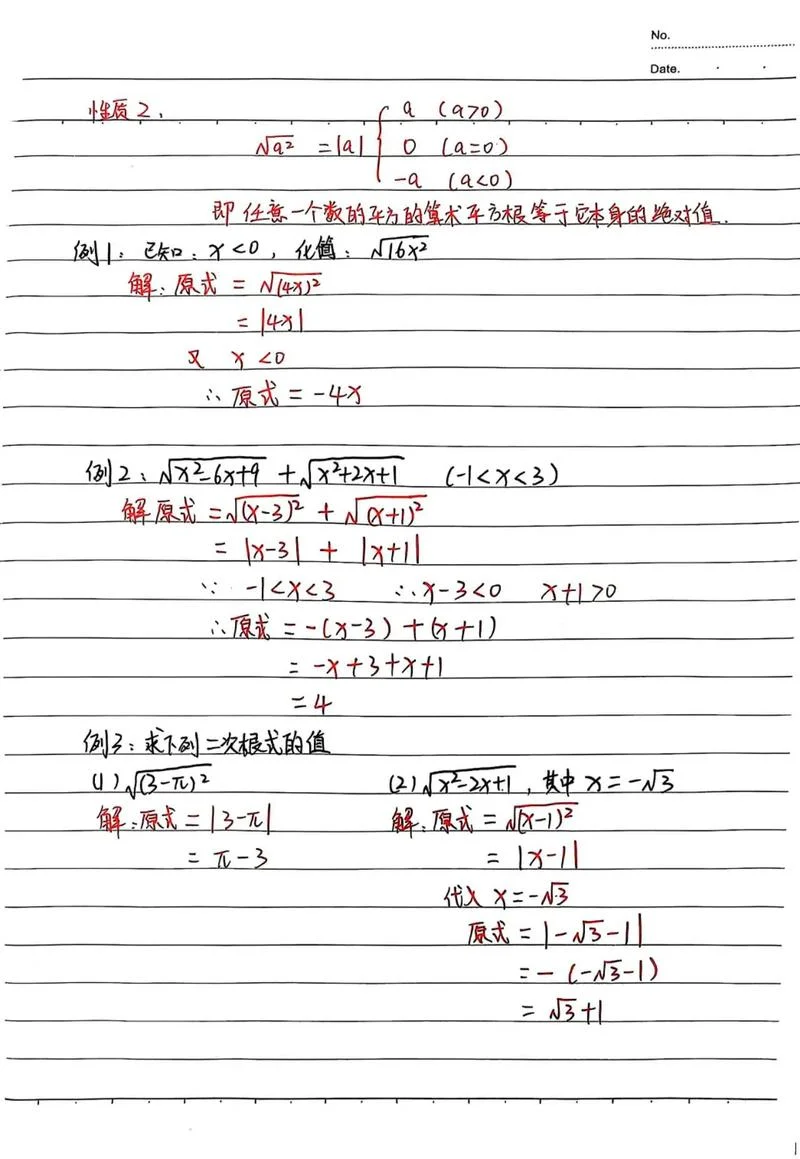 No.
Date.
性质2、
a (a>0)
√a² = |a| { 0 (a=0)
-a (a<0)
即任意一个数的平方的算术平方根等于它本身的绝对值.
例1: 已知: x<0, 化简: √16x²
解: 原式 = √(4x)²
= |4x|
又 x <0
∴ 原式 = -4x
例2: √x²-6x+9 + √x²+2x+1 (-1<x<3)
解 原式 = √(x-3)² + √(x+1)²
= |x-3| + |x+1|
∵ -1<x<3 ∴ x-3<0 x+1>0
∴原式 = -(x-3) + (x+1)
= -x+3+x+1
= 4
例3: 求下列二次根式的值
(1) √(3-π)² (2) √x²-2x+1, 其中 x=-√3
解: 原式 = |3-π| 解: 原式 = √(x-1)²
= π-3 = |x-1|
代入 x=-√3
原式 = |-√3-1|
= -(-√3-1)
= √3+1